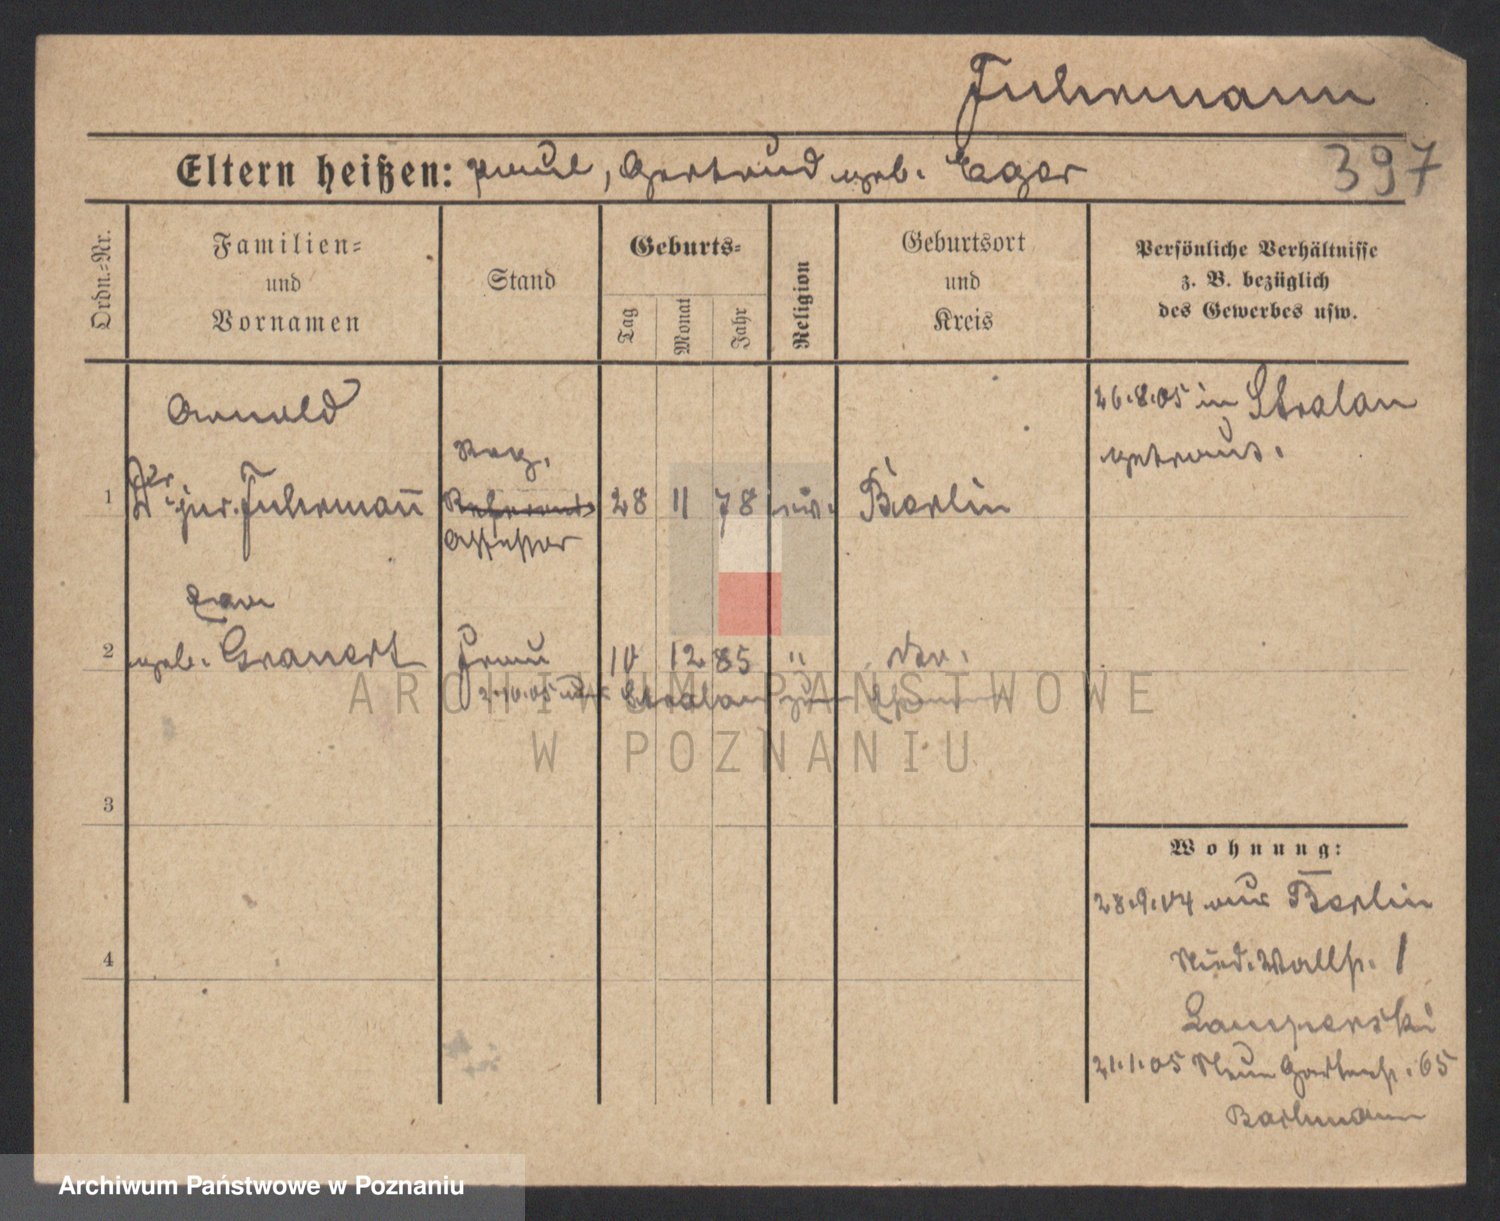 Fuhrmann
397
Eltern heißen: Paul, Gertrud geb. Eger
Ordn.-Nr.
Familien-
und
Vornamen
Stand
Geburts-
Tag
Monat
Jahr
Religion
Geburtsort
und
Kreis
Persönliche Verhältnisse
z. B. bezüglich
des Gewerbes usw.
26.8.05 in Stralau
getraut.
Arnold
1 Dr jur. Fuhrmann̄ Reg. Referend. Assessor 28 11 78 ev. Berlin
Eva
2 geb. Granert Frau 10 12 85 " Do.
2.10.05 aus Stralau
3
4
Wohnung:
28.9.04 aus Berlin
Nied. Wallstr. 1
21.1.05 Neue Gartenstr. 65
Barlmann
ARCHIWUM PAŃSTWOWE
W POZNANIU
Archiwum Państwowe w Poznaniu